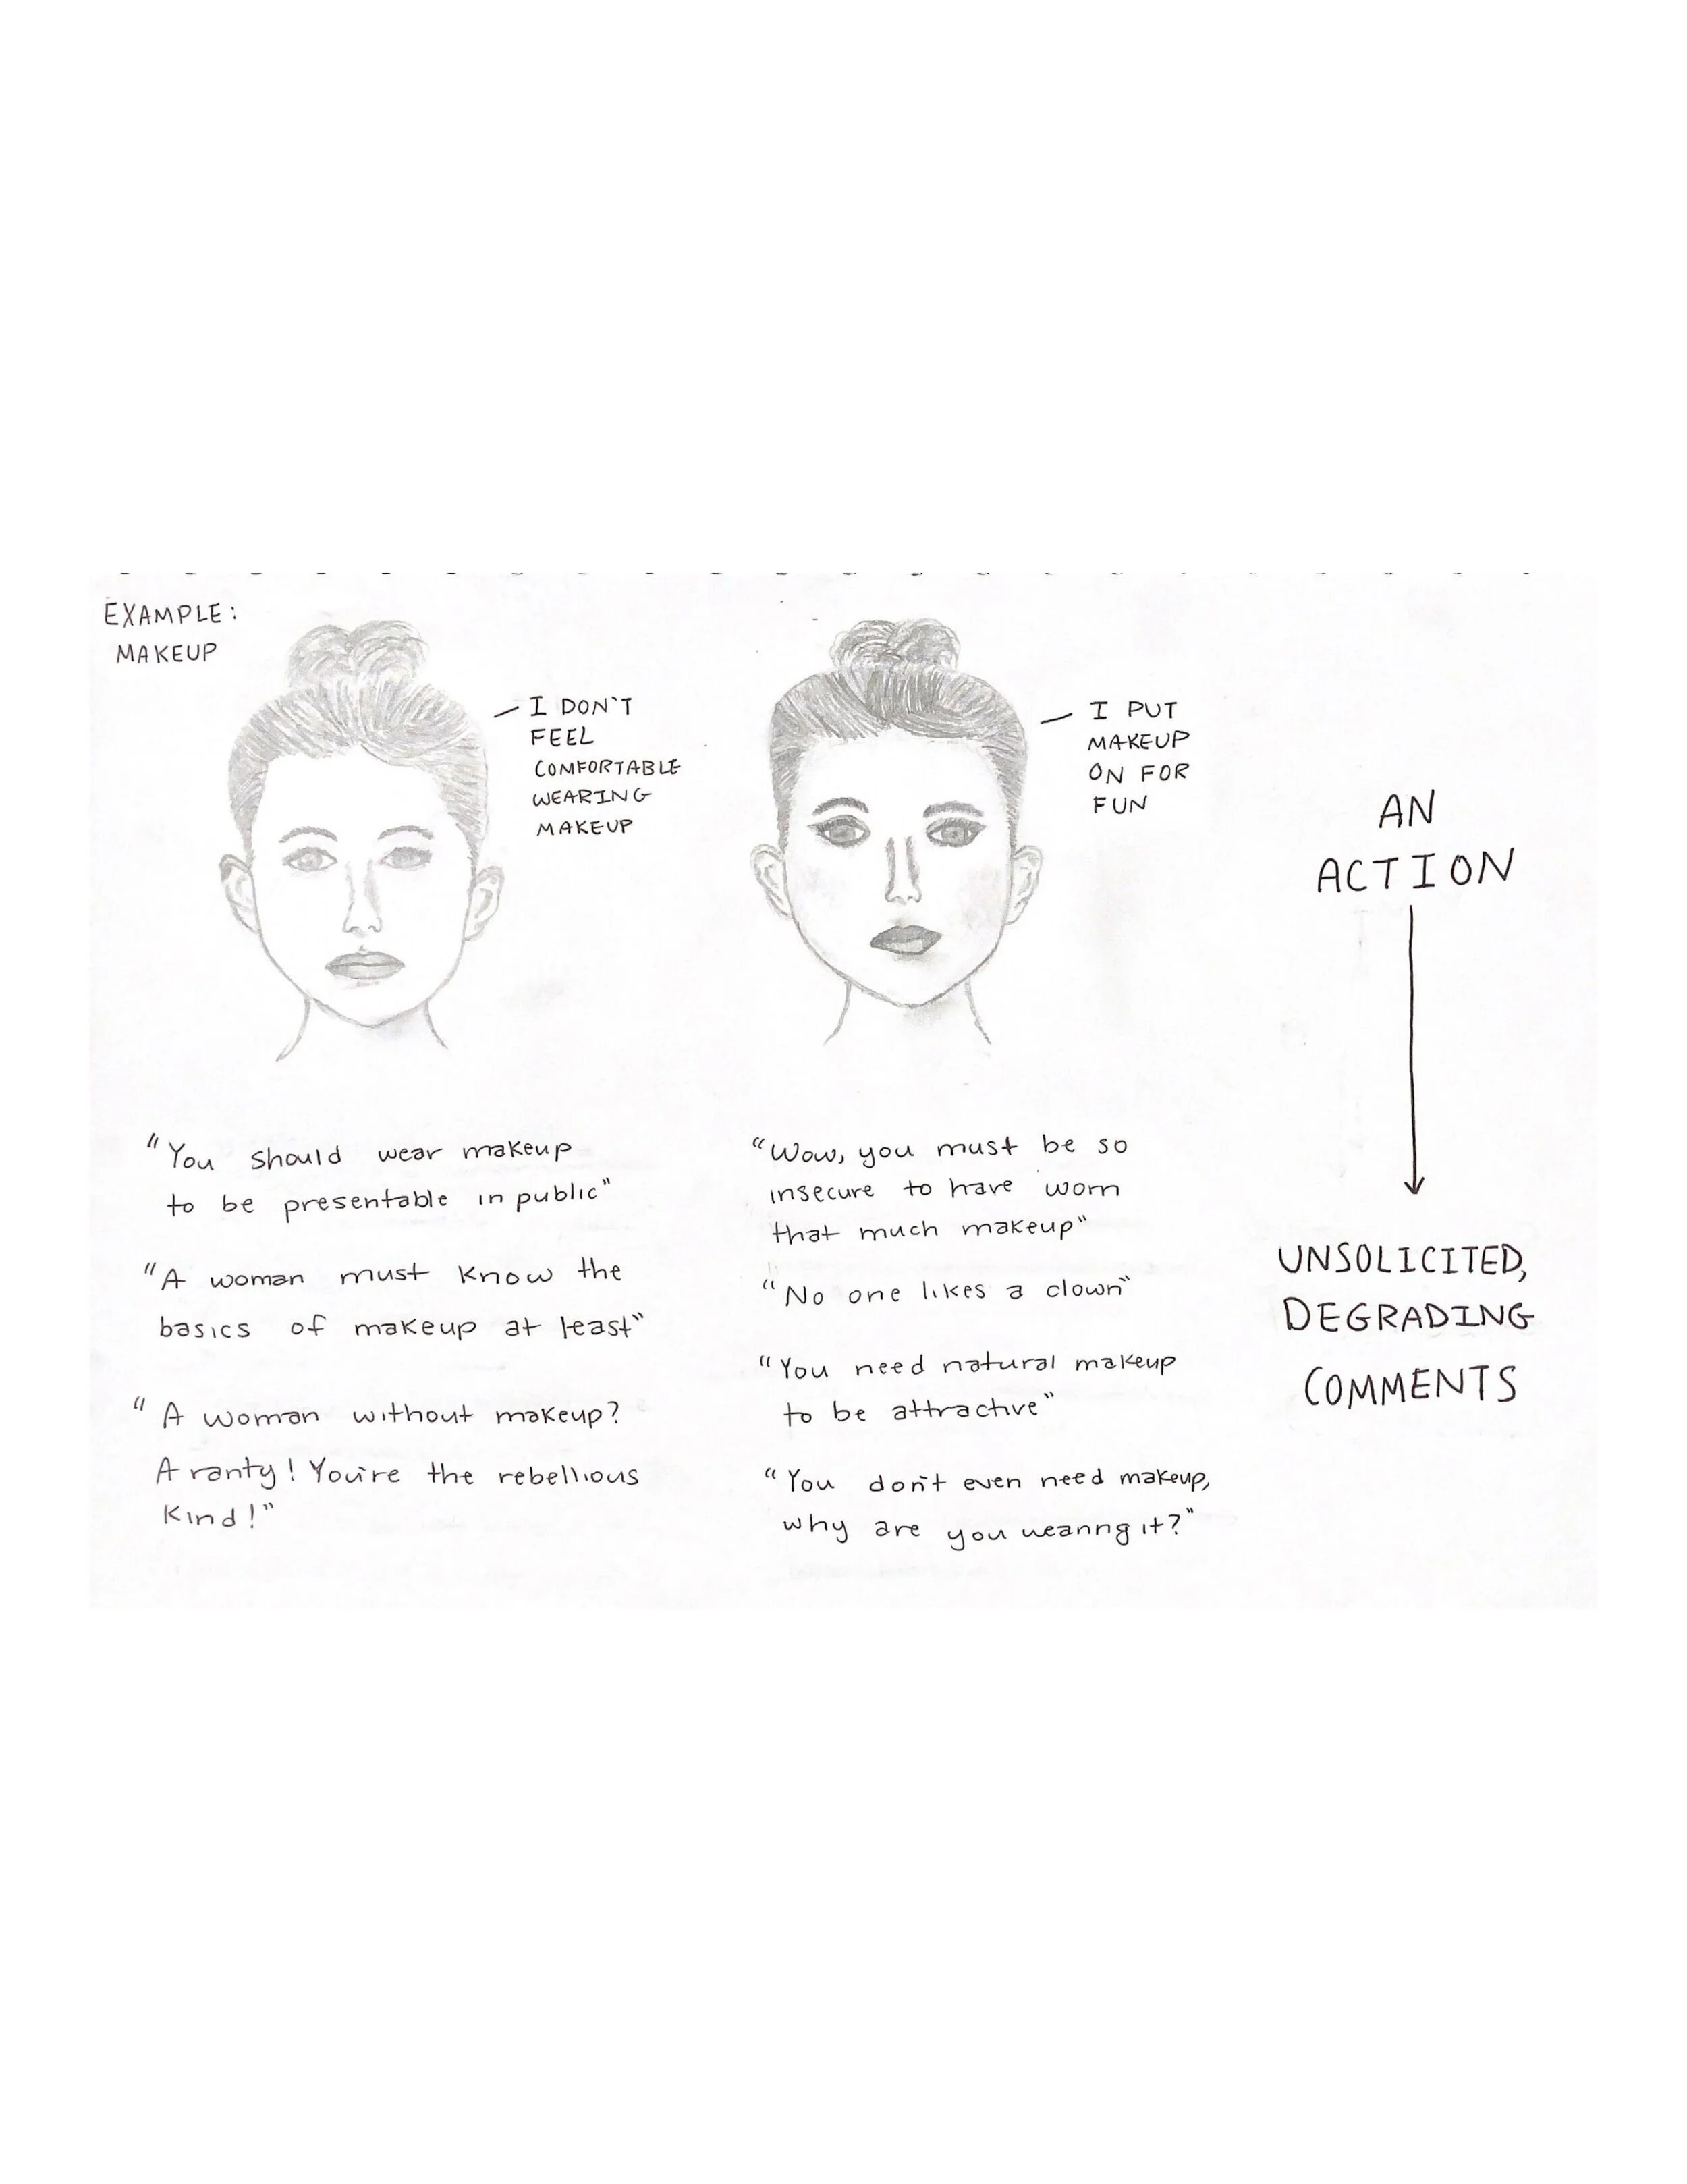 EXAMPLE:
MAKEUP
I DON'T
FEEL
COMFORTABLE
WEARING
MAKEUP
"You should wear makeup
to be presentable in public"
"A woman must know the
basics of makeup at least"
"A woman without makeup?
A ranty! You're the rebellious
kind!"
I PUT
MAKEUP
ON FOR
FUN
"Wow, you must be so
insecure to have worn
that much makeup"
"No one likes a clown"
"You need natural makeup
to be attractive"
"You don't even need makeup,
why are you wearing it?"
AN
ACTION
UNSOLICITED,
DEGRADING
COMMENTS